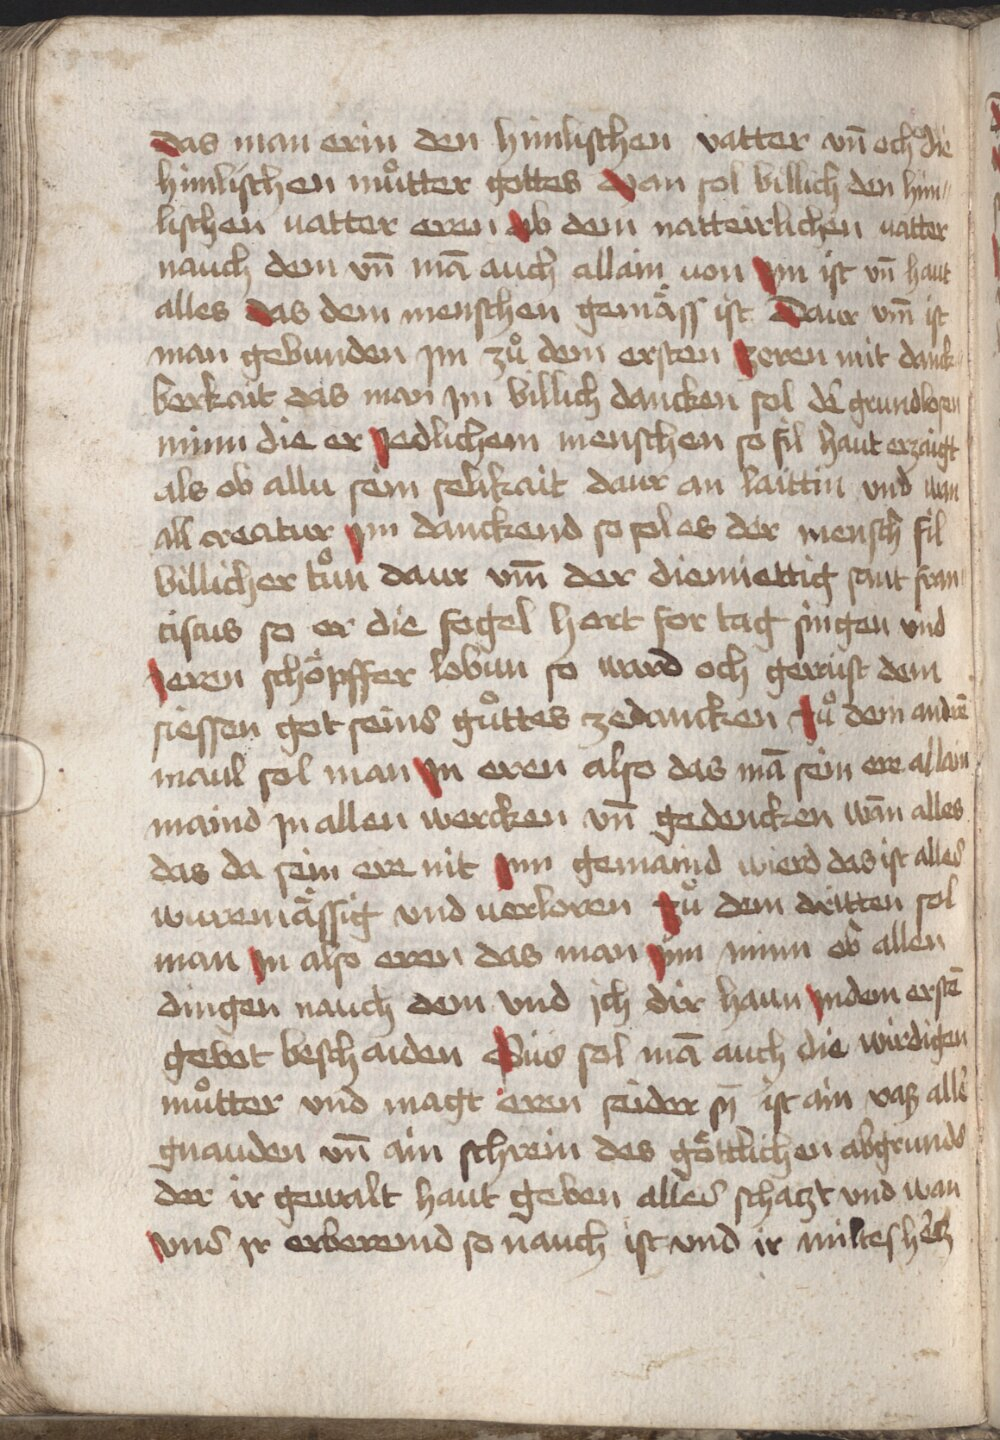 das man erin den himlischen vatter vn̄ och die
himlischen můtter gottes wan sol billich den him⸗
lischen vatter eren ob dem natteirlichen vatter
nauch dem vn̄ mā auch allain uon jm ist vn̄ haut
alles das dem menschen gemäss ist Daur vm̄ ist
man gebunden jm zů dem ersten zeren mit danck⸗
berkait das man jm billich dancken sol de grundlosen
minn die er jedlichem menschen so fil haut erzaigt
als ob allu sein selikait daur an laittin vnd wan
all creatur jm danckend so sol es der mensch fil
billicher tůn daur vm̄ der diemiettig sant fran⸗
ciscus so er die fogel hort for tag singen vnd
jeren schöpffer lobun so ward och gerust dem
siessen got seins gůttes zedancken zů dem andrē
maul sol man jn eren also das mā sein ere allain
maind jn allen wercken vn̄ gedencken wān alles
das da sein ere nit jnn gemaind wierd das ist alles
wuremässig vnd uerloren zů dem dritten sol
man jn also eren das man jnn minn ob allen
dingen nauch dem vnd ich dir haun jndem erstē
gebot beschaiden Sus sol mā auch die wirdigen
můtter vnd magt eren seider sȳ ist ain vaß alle
gnauden vn̄ ain schrein des göttlichen abgrunds
der ir gewalt haut geben alles schatzt vnd wan
vns jr erberemd so nauch ist vnd ir miltes hetz